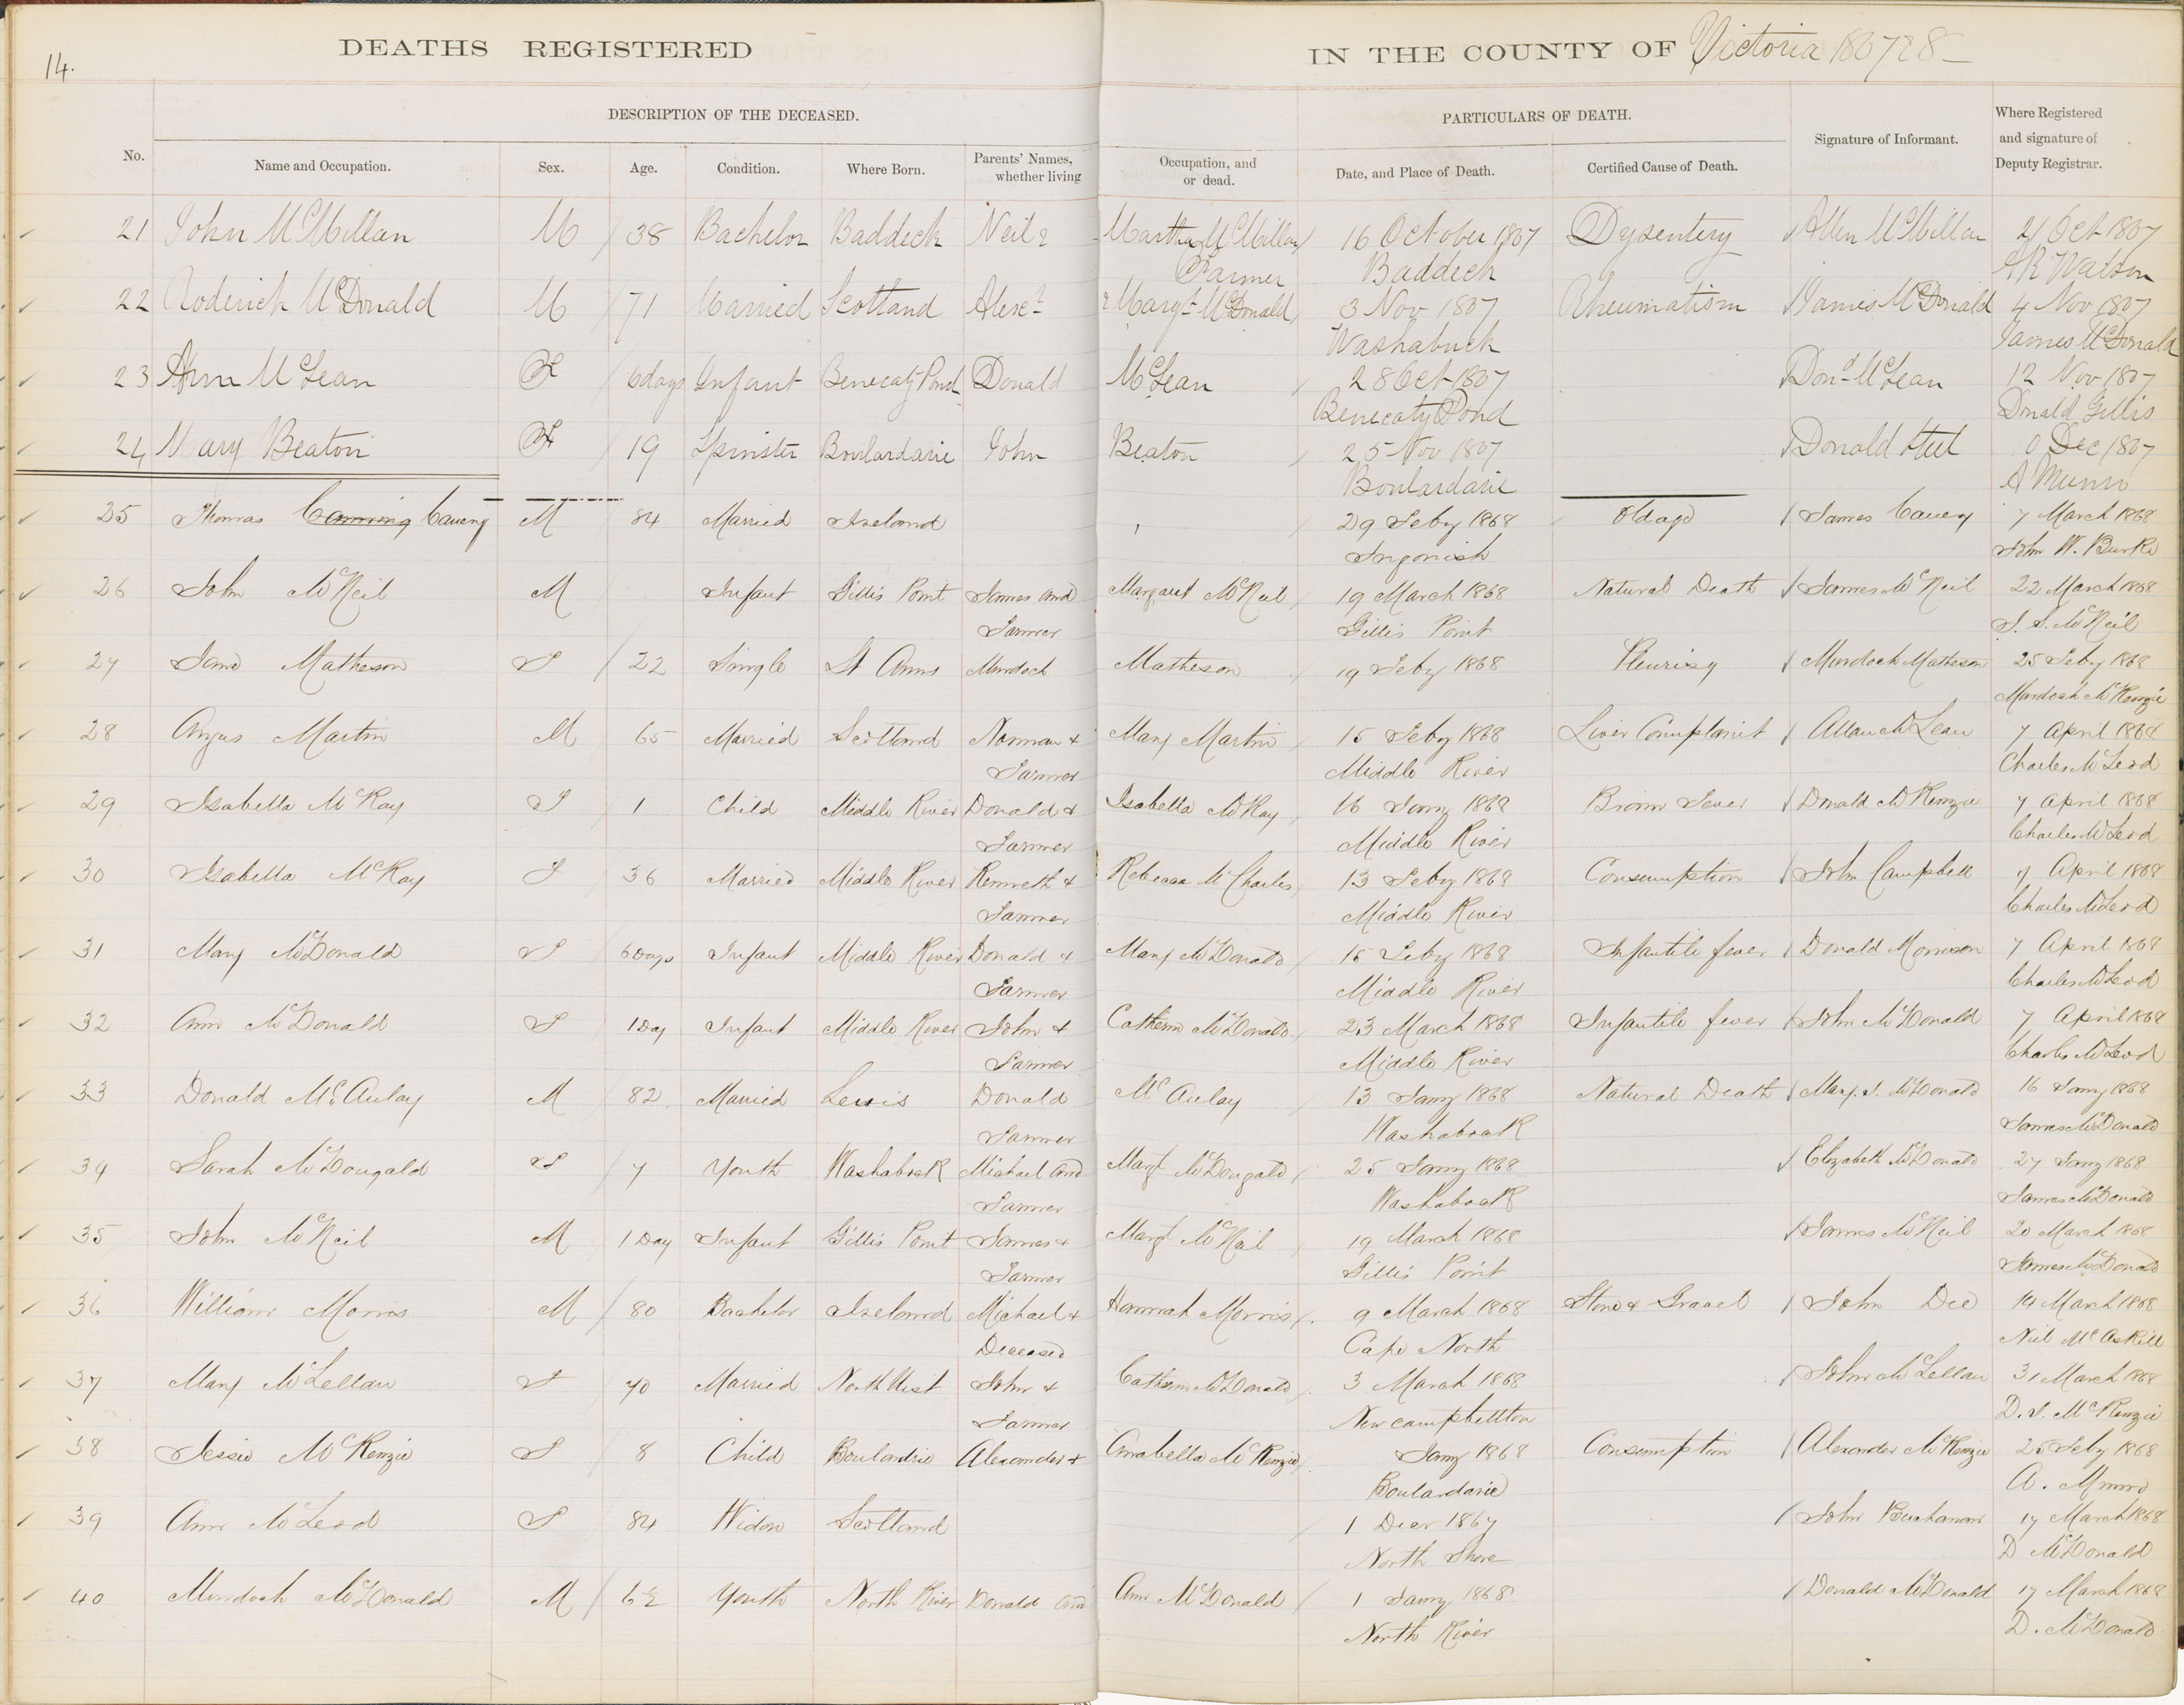 14.
DEATHS REGISTERED IN THE COUNTY OF Victoria 1867 & 8
DESCRIPTION OF THE DECEASED. PARTICULARS OF DEATH.
No. Name and Occupation. Sex. Age. Condition. Where Born. Parents' Names, whether living Occupation, and or dead. Date, and Place of Death. Certified Cause of Death. Signature of Informant. Where Registered and signature of Deputy Registrar.
21 John McMillan M 38 Bachelor Baddeck Neil & Martha McMillan 16 October 1867 Dysentery Allen McMillan 21 Oct 1867
Farmer Baddeck AR Watson
22 Roderick McDonald M 71 Married Scotland Alexr & Margt McDonald 3 Nov 1867 Rheumatism James McDonald 4 Nov 1867
Washabuck James McDonald
23 Ann McLean F 6 days Infant Benecaty Pond Donald McLean 28 Oct 1867 Dond McLean 12 Nov 1867
Benecaty Pond Donald Gillis
24 Mary Beaton F 19 Spinster Boulardarie John Beaton 25 Nov 1867 Donald Steel Dec 1867
Boulardarie A Munro
25 Thomas Cavery M 84 Married Ireland 29 Feby 1868 Old age James Cavery 7 March 1868
Ingonish John W. Burke
26 John McNeil M Infant Gillis Point James and Margaret McNeil 19 March 1868 Natural Death James McNeil 22 March 1868
Farmer Gillis Point S. S. McNeil
27 Jane Matheson F 22 Single St Anns Murdoch Matheson 19 Feby 1868 Pleurisy Murdoch Matheson 25 Feby 1868
Murdoch McKenzie
28 Angus Martin M 65 Married Scotland Norman & Mary Martin 15 Feby 1868 Liver Complaint Allan McLean 7 April 1868
Farmer Middle River Charles McLeod
29 Isabella McKay F 1 Child Middle River Donald & Isabella McKay 16 Jany 1868 Brain Fever Donald McKenzie 7 April 1868
Farmer Middle River Charles McLeod
30 Isabella McKay F 36 Married Middle River Kenneth & Rebecca McCharles 13 Feby 1868 Consumption John Campbell 7 April 1868
Farmer Middle River Charles McLeod
31 Mary McDonald F 6 Days Infant Middle River Donald & Mary McDonald 15 Feby 1868 Infantile fever Donald Morrison 7 April 1868
Farmer Middle River Charles McLeod
32 Ann McDonald F 1 Day Infant Middle River John & Catherin McDonald 23 March 1868 Infantile fever John McDonald 7 April 1868
Farmer Middle River Charles McLeod
33 Donald McAulay M 82 Married Lewis Donald McAulay 13 Jany 1868 Natural Death Mary. S. McDonald 16 Jany 1868
Farmer Washaback James McDonald
34 Sarah McDougald F 7 Youth Washaback Michael and Margt McDougald 25 Jany 1868 Elizabeth McDonald 27 Jany 1868
Farmer Washaback James McDonald
35 John McNeil M 1 Day Infant Gillis Point James & Margt McNeil 19 March 1868 James McNeil 20 March 1868
Farmer Gillis Point James McDonald
36 William Morris M 80 Bachelor Ireland Michael & Hannah Morris 9 March 1868 Stone & Gravel John Dee 14 March 1868
Deceased Cape North Neil McAskill
37 Mary McLellan F 70 Married North Uist John & Catherin McDonald 3 March 1868 John McLellan 31 March 1868
Farmer New campbellton D. S. McKenzie
38 Jessie McKenzie F 8 Child Boulardrie Alexander & Annabella McKenzie Jany 1868 Consumption Alexander McKenzie 25 Feby 1868
Boulardarie A. Munro
39 Ann McLeod F 84 Widow Scotland 1 Decr 1867 John Buchanan 17 March 1868
North Shore D McDonald
40 Murdoch McDonald M 6½ Youth North River Donald and Ann McDonald 1 Jany 1868 Donald McDonald 17 March 1868
North River D. McDonald